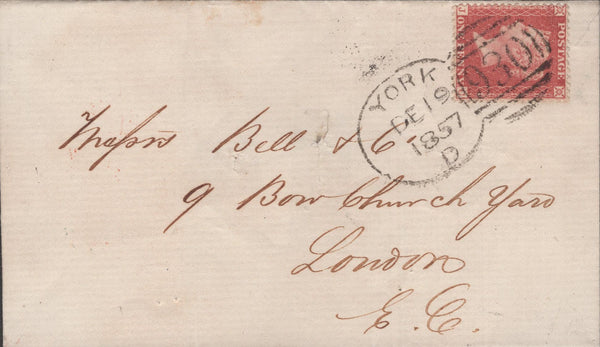 POSTAGE
YORK
DE 19
1857
D
930
Messrs Bell & Co
9 Bow Church Yard
London
E. C.